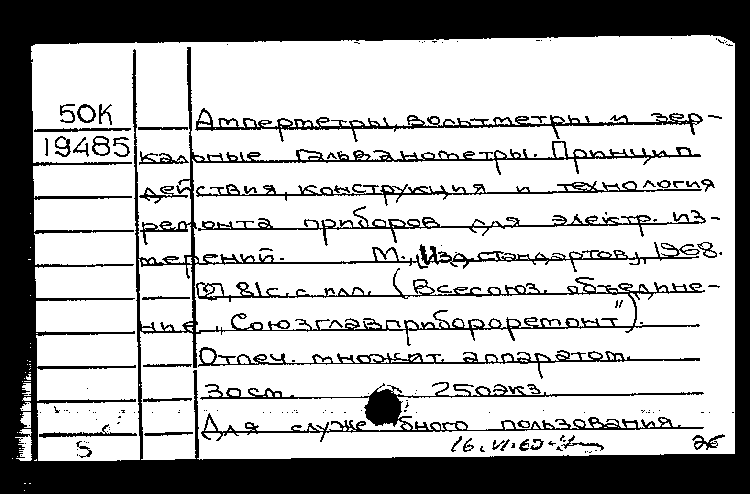 50К Амперметры, вольтметры и зер-
19485 кальные гальванометры. Принцип
действия, конструкция и технология
ремонта приборов для электр. из-
мерений. М., "Изд. стандартов", 1968.
81с. с илл. (Всесоюз. объедине-
ние "Союзглавприбороремонт").
Отпеч. множит. аппаратом.
30 cm. 250экз.
Для служебного пользования.
5 26